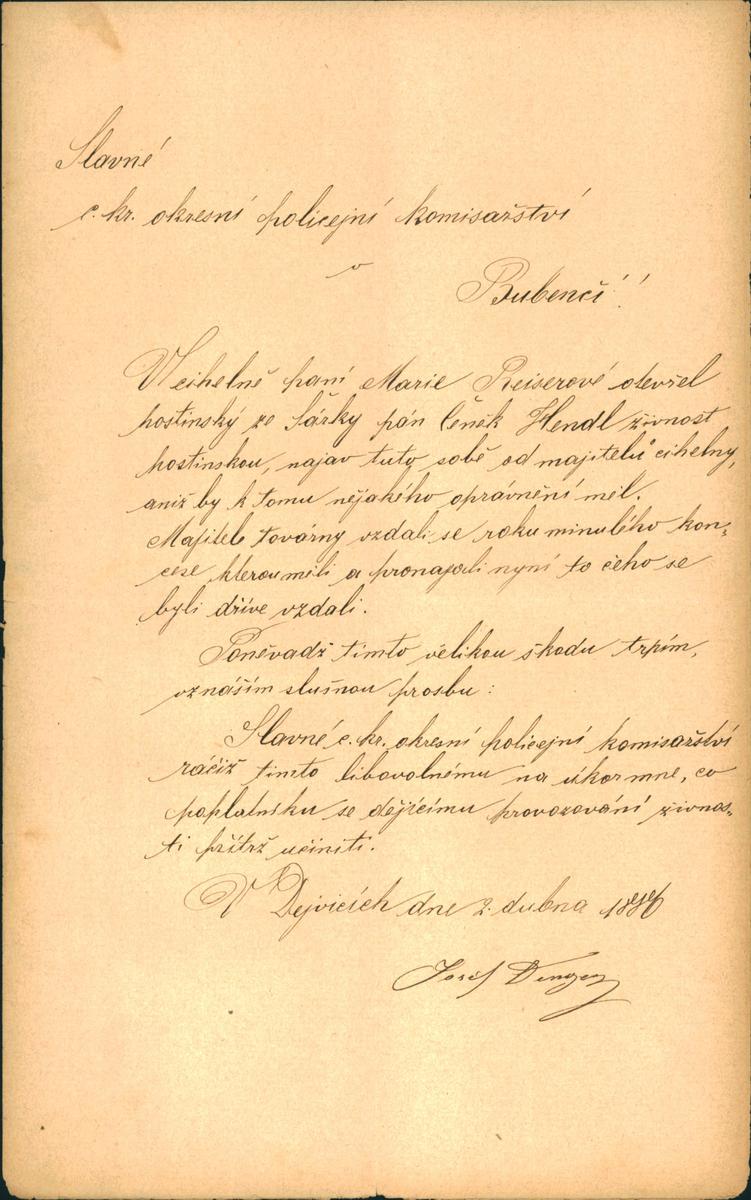 Slavné
c. kr. okresní policejní komisařství
v
Bubenči!
V cihelně paní Marie Reiserové otevřel
hostinský ze Šárky pán Čeněk Hendl živnost
hostinskou, najav tuto sobě od majitelů cihelny,
aniž by k tomu nějakého oprávnění měl.
Majitelé továrny vzdali se roku minulého kon-
cese kterou měli a pronajali nyní to čeho se
byli dříve vzdali.
Poněvadž tímto velikou škodu trpím,
vznáším slušnou prosbu:
Slavné c. kr. okresní policejní komisařství
račiž tímto libovolnému na úkor mne, co
poplatníku se dějícímu provozování živnos-
ti přítrž učiniti.
V Dejvicích dne 2. dubna
Josef